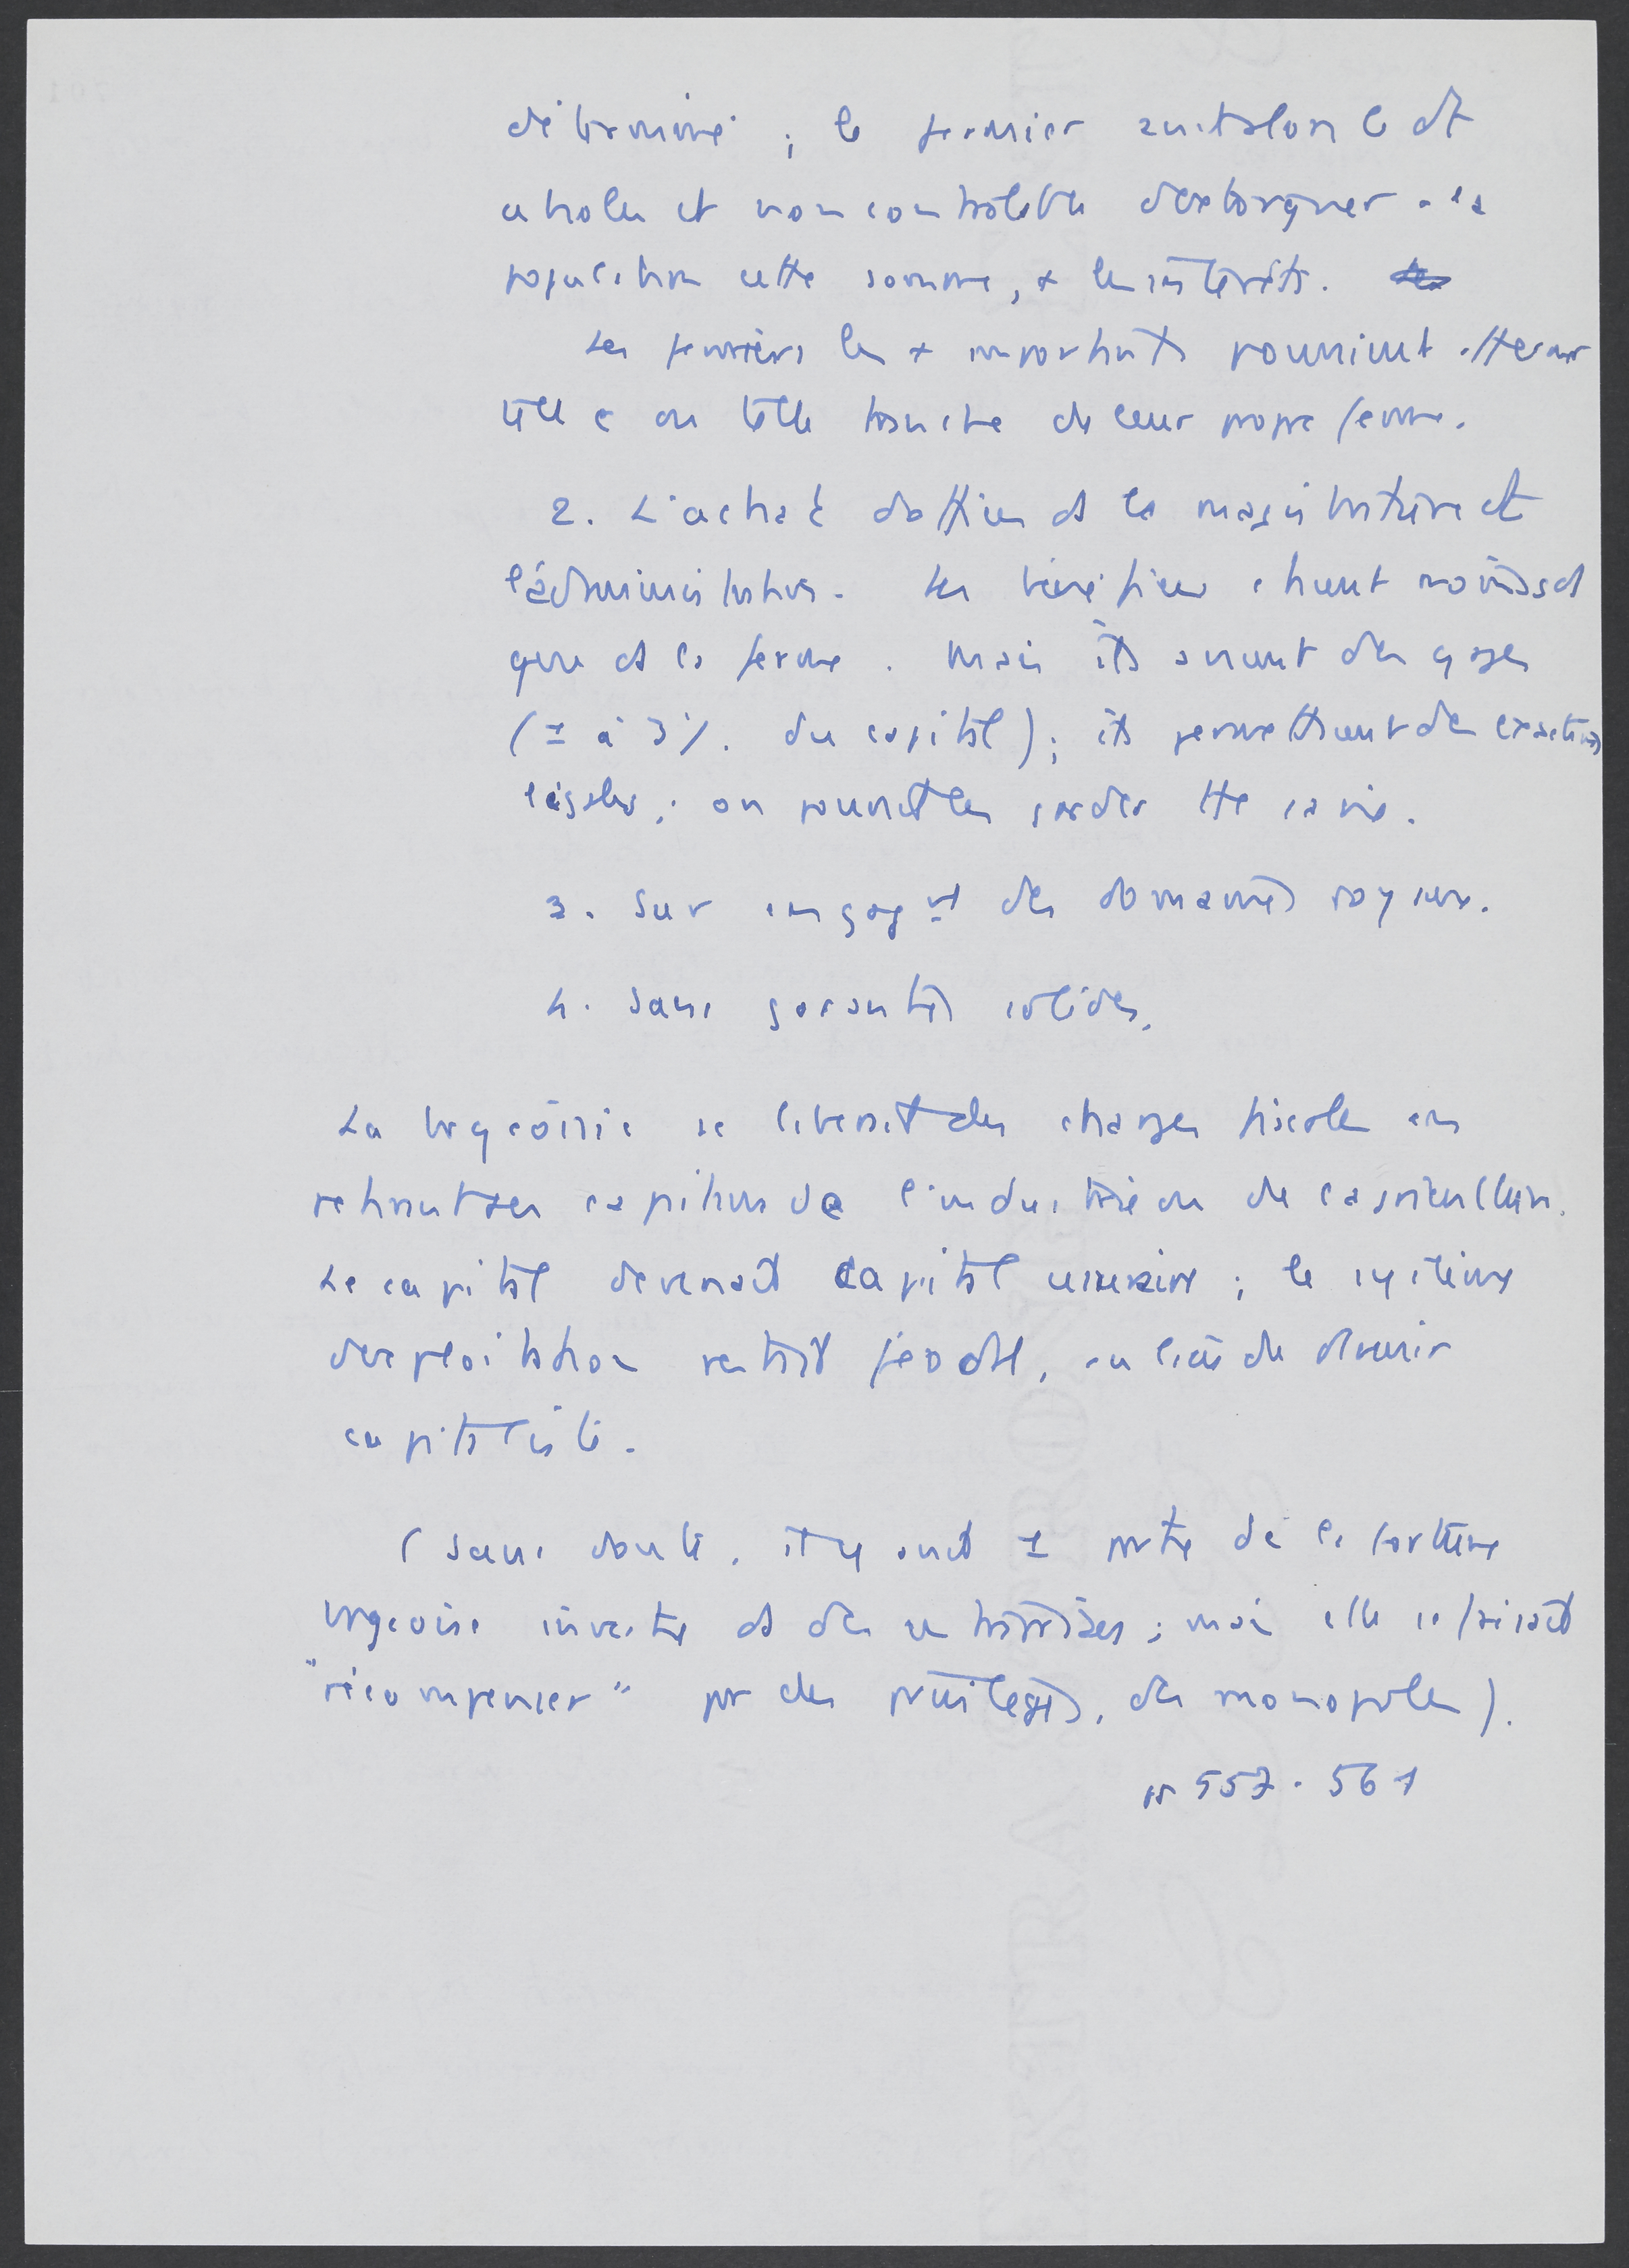 déterminé ; le fermier avait alors le dt
absolu et non contrôlable d'extorquer à la
population cette somme, + les intérêts.
Les fermiers les + importants pouvaient affermer
telle ou telle branche de leur propre ferme.
2. L'achat d'offices ds la magistrature et
l'administration. Les bénéfices étaient moindres
que ds la ferme. Mais ils avaient des gages
(1 à 3%. du capital) ; ils permettaient des exactions
légales ; on pouvait les garder tte sa vie.
3. Sur engagt des domaines royaux.
4. Sans garanties solides.
La brgeoisie se libérait des charges fiscales en
retirant ses capitaux de l'industrie ou de l'agriculture.
Le capital devenait capital usuraire ; le système
d'exploitation restait féodal, au lieu de devenir
capitaliste.
(Sans doute, il y avait 1 partie de la fortune
brgeoise investie ds des entreprises ; mais elle se faisait
"récompenser" par des privilèges, des monopoles).
557-561